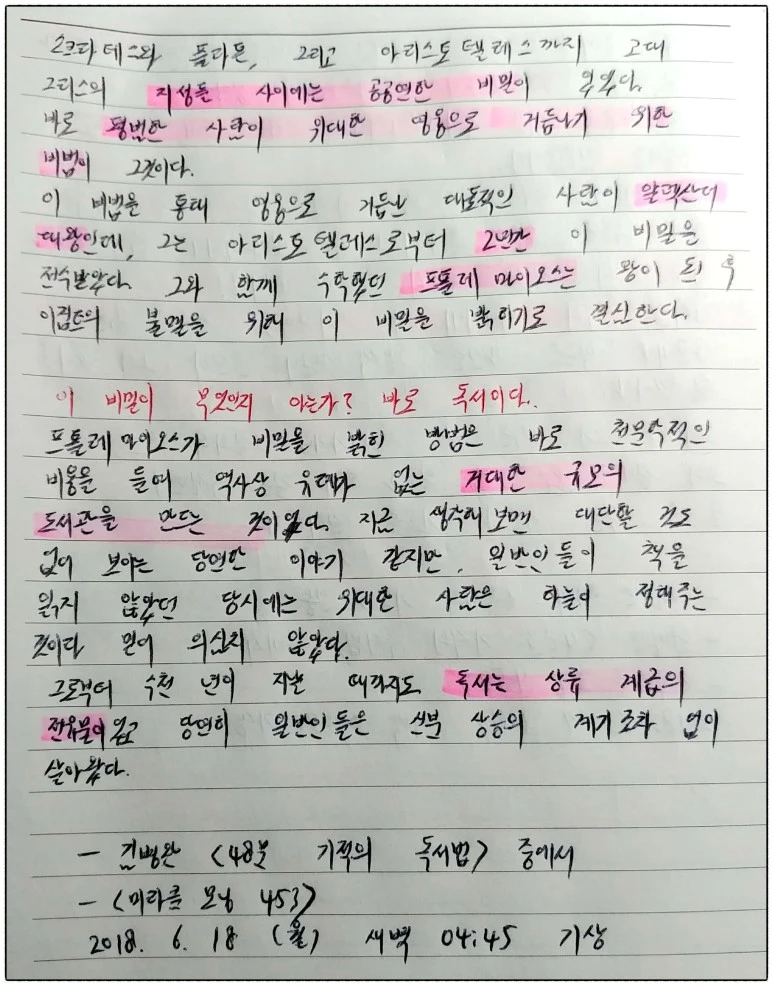 소크라테스와 플라톤, 그리고 아리스토텔레스까지 고대
그리스의 지성들 사이에는 공공연한 비밀이 있었다.
바로 평범한 사람이 위대한 영웅으로 거듭나기 위한
비법이 그것이다.
이 비법을 통해 영웅으로 거듭난 대표적인 사람이 알렉산더
대왕인데, 그는 아리스토텔레스로부터 2년간 이 비밀을
전수받았다. 그와 함께 수학했던 프톨레마이오스는 왕이 된 후
이집트의 불멸을 위해 이 비밀을 밝히기로 결심한다.
이 비밀이 무엇인지 아는가? 바로 독서이다..
프톨레마이오스가 비밀을 밝힌 방법은 바로 천문학적인
비용을 들여 역사상 유례가 없는 거대한 규모의
도서관을 만드는 것이었다. 지금 생각해보면 대단할 것도
없어 보이는 당연한 이야기 같지만, 일반인들이 책을
읽지 않았던 당시에는 위대한 사람은 하늘이 정해주는
것이라 믿어 의심치 않았다.
그로부터 수천 년이 지날 때까지도 독서는 상류 계급의
전유물이었고 당연히 일반인들은 신분 상승의 계기조차 없이
살아왔다.
- 김병완 <48분 기적의 독서법> 중에서
- <미라클 모닝 453>
2018. 6. 18 (월) 새벽 04:45 기상